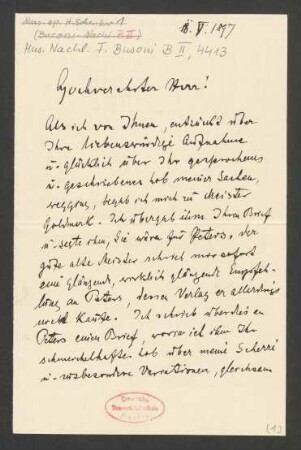 Mus. ep. H. Schenker 1
(Busoni-Nachl. B II)
Mus. Nachl. F. Busoni B II, 4413
18. V. 1897
Hochverehrter Herr!
Als ich von Ihnen, entzückt über
Ihre liebenswürdige Aufnahme
u. glücklich über Ihr gesprochenes
u. geschriebenes Lob meiner Sachen,
wegging, begab ich mich zu Meister
Goldmark. Ich übergab ihm Ihren Brief
u. sagte ihm, Sie wären für Peters, der
gute alte Meister schrieb mir sofort
eine glänzende, wirklich glänzende Empfeh-
lung an Peters, dessen Verlag er allerdings
nicht kannte. Ich schrieb überdies an
Peters einen Brief, worin ich ihm Ihr
schmeichelhaftes Lob über meine Scherzi
u. insbesondere Variationen, gleichsam
Deutsche
Staatsbibliothek
Berlin